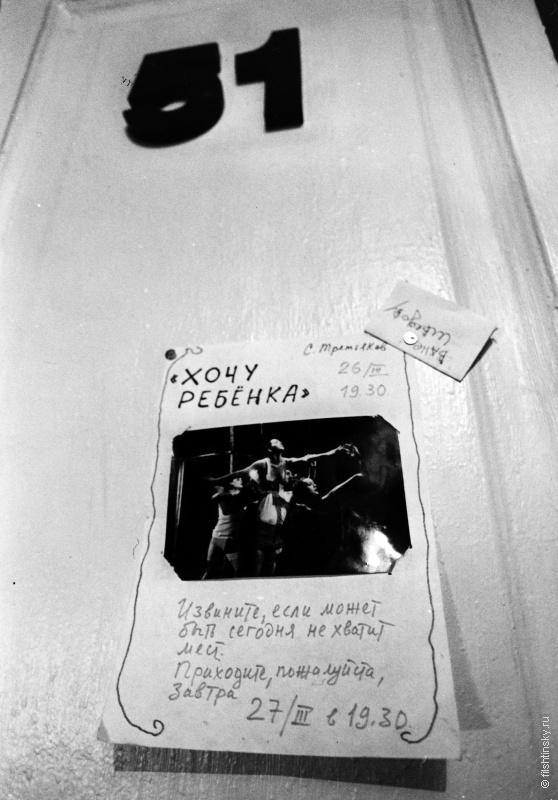 51
Ване
Шведову
С. Третьяков
«ХОЧУ
РЕБЁНКА»
26/III
19.30
Извините, если может
быть сегодня не хватит
мест.
Приходите, пожалуйста,
Завтра
27/III в 19.30.
© flishtinsky.ru